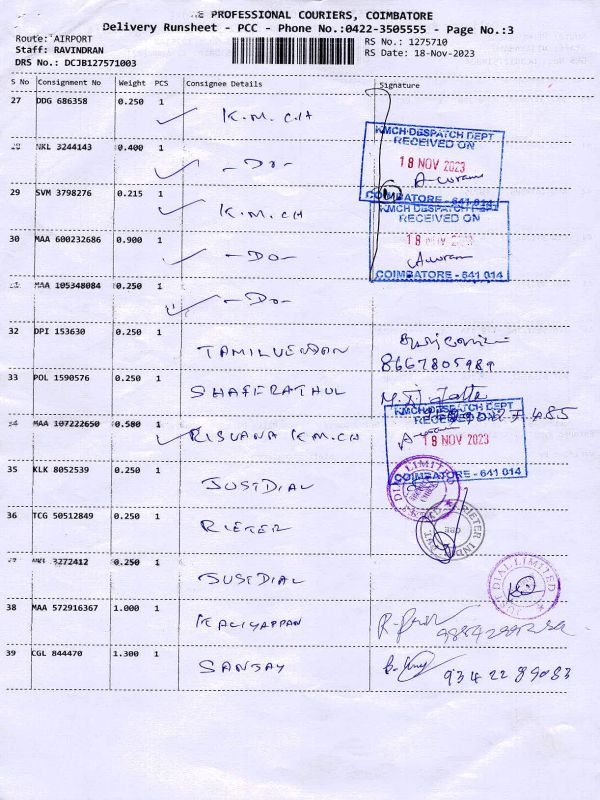 THE PROFESSIONAL COURIERS, COIMBATORE
Delivery Runsheet - PCC - Phone No.:0422-3505555 - Page No.:3
Route: AIRPORT RS No.: 1275710
Staff: RAVINDRAN RS Date: 18-Nov-2023
DRS No.: DCJB127571003
S No Consignment No Weight PCS Consignee Details Signature
27 DDG 686358 0.250 1 K.M.CH
KMCH DESPATCH DEPT
RECEIVED ON
28 NKL 3244143 0.400 1 -Do- 18 NOV 2023
COIMBATORE - 641 014
29 SVM 3798276 0.215 1 K.M.CH
KMCH DESPATCH DEPT
RECEIVED ON
30 MAA 600232686 0.900 1 -Do- 18 NOV 2023
COIMBATORE - 641 014
31 MAA 105348084 0.250 1 -Do-
32 DPI 153630 0.250 1 TAMILVENDAN
8667805989
33 POL 1590576 0.250 1 SHAFERATHUL
KMCH DESPATCH DEPT
RECEIVED ON
34 MAA 107222650 0.580 1 RISVANA K.M.CH 18 NOV 2023
COIMBATORE - 641 014
35 KLK 8052539 0.250 1 JUSTDIAL DIAL LIMITED
36 TCG 50512849 0.250 1 RIETER
37 NKL 3272412 0.250 1 JUSTDIAL JUST DIAL LIMITED
38 MAA 572916367 1.000 1 KALIYAPPAN
39 CGL 844470 1.300 1 SANJAY 9342289083